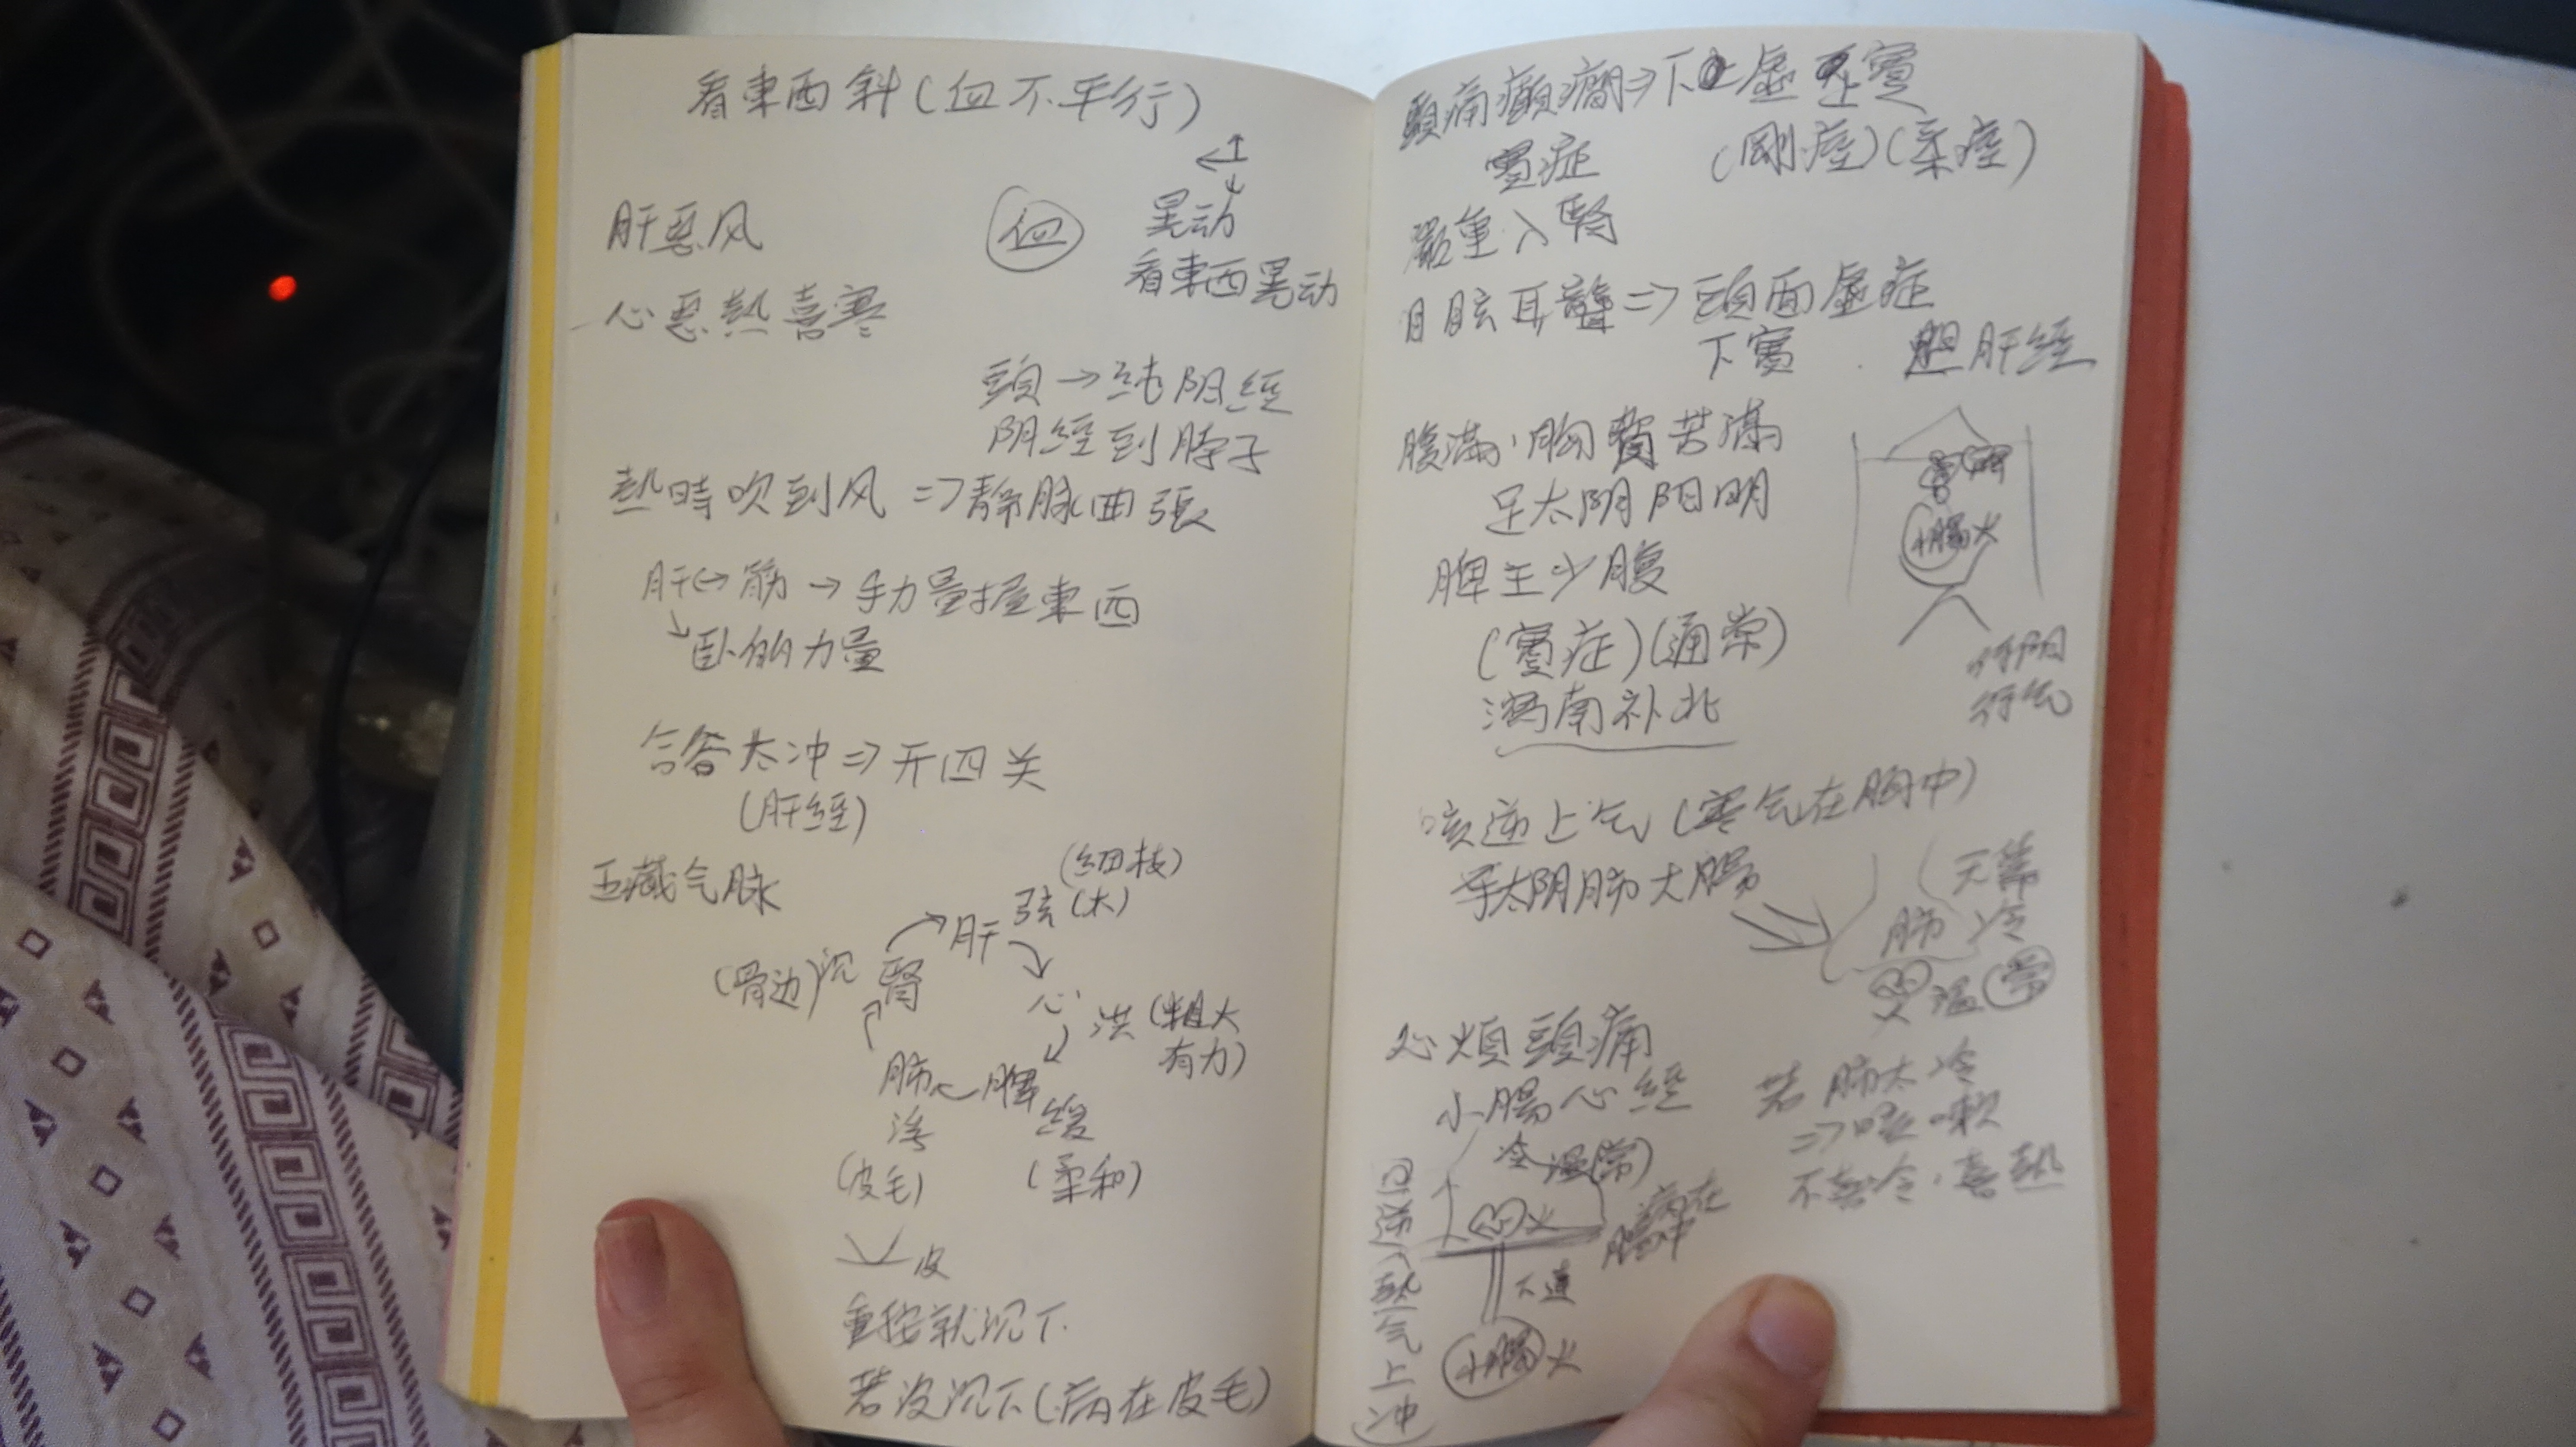 看東西斜(血不平行)
肝惡风
血
晃动
看東西晃动
心惡熱喜寒
頭→純阴經
阴經到脖子
熱時吹到风⇒靜脉曲張
肝↔筋→手力量握東西
↘卧的力量
合谷太冲⇒开四关
(肝經)
五藏气脉
(細枝)
肝 弦(木)
(骨边)沉 腎
心 洪(粗大
有力)
肺←脾
浮 緩
(皮毛) (柔和)
皮
重按就沉下
若没沉下(病在皮毛)
頭痛癲癇⇒下虛上實
實症 (剛痙)(柔痙)
嚴重入腎
目眩耳聾⇒頭面虛症
下實 胆肝經
腹滿、胸苦滿
足太阴阳明
小腸火
脾主少腹
(實症)(通常)
瀉南补北
行气
咳逆上气(寒气在胸中)
手太阴肺大腸
肺 冷
心火溫(常)
心煩頭痛
小腸心經
若肺太冷
⇒咳嗽
不喜冷、喜熱
冷 溫(常)
心火
病在
下達
小腸火